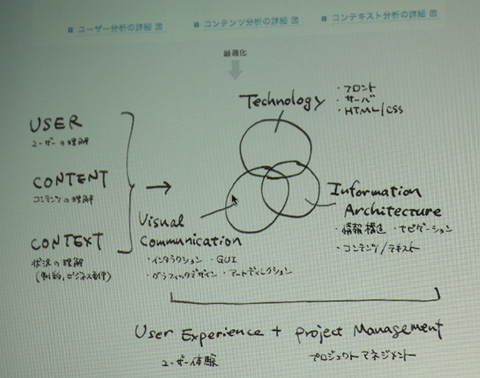 ユーザー分析の詳細
コンテンツ分析の詳細
コンテキスト分析の詳細
最適化
Technology
・フロント
・サーバ
・HTML/CSS
USER
ユーザーの理解
CONTENT
コンテンツの理解
CONTEXT
状況の理解
(制約,ビジネス要件)
Visual
Communication
・インタラクション ・GUI
・グラフィックデザイン ・アートディレクション
Information
Architecture
・情報構造 ・ナビゲーション
・コンテンツ/テキスト
User Experience + Project Management
ユーザー体験
プロジェクトマネジメント